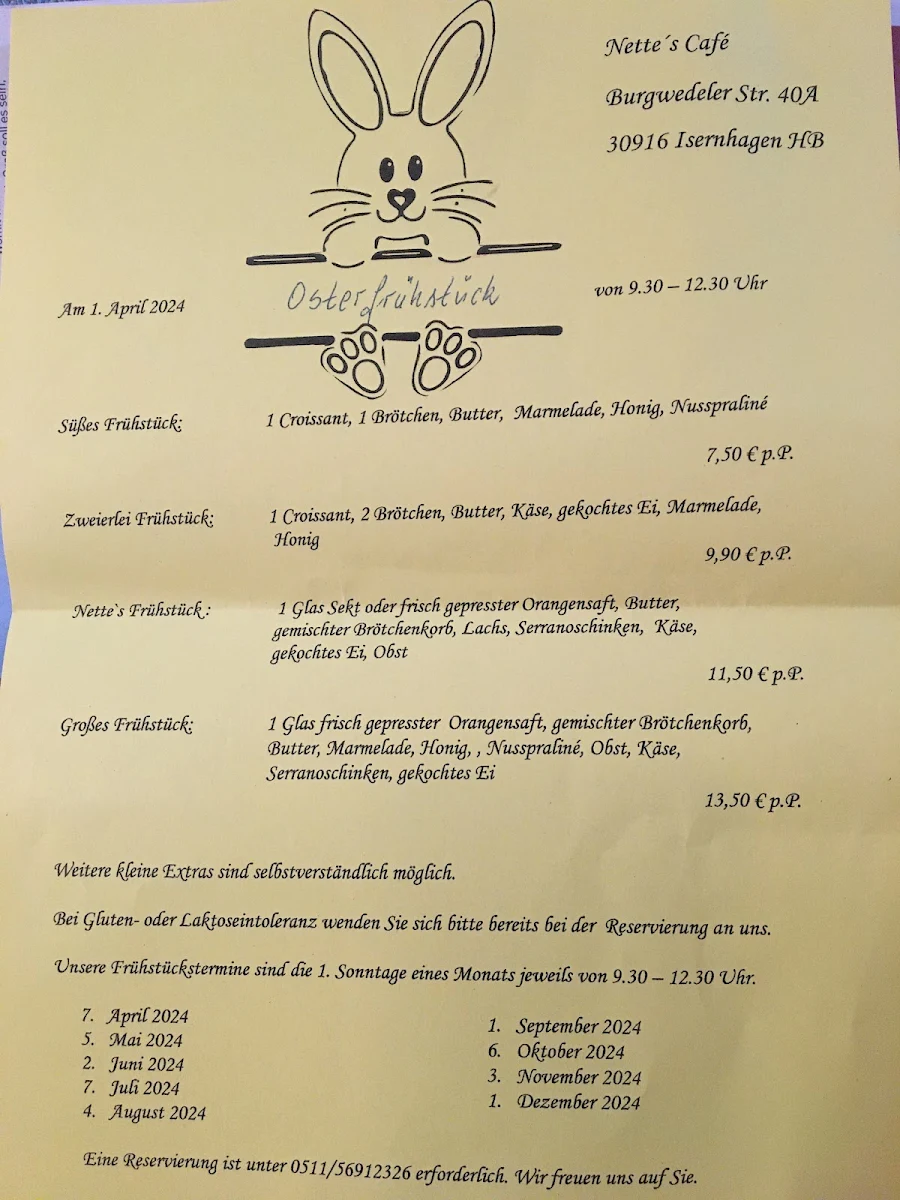 Nette´s Café
Burgwedeler Str. 40A
30916 Isernhagen HB
Am 1. April 2024
Osterfrühstück
von 9.30 – 12.30 Uhr
Süßes Frühstück:
1 Croissant, 1 Brötchen, Butter, Marmelade, Honig, Nusspraliné
7,50 € p.P.
Zweierlei Frühstück:
1 Croissant, 2 Brötchen, Butter, Käse, gekochtes Ei, Marmelade,
Honig
9,90 € p.P.
Nette`s Frühstück :
1 Glas Sekt oder frisch gepresster Orangensaft, Butter,
gemischter Brötchenkorb, Lachs, Serranoschinken, Käse,
gekochtes Ei, Obst
11,50 € p.P.
Großes Frühstück:
1 Glas frisch gepresster Orangensaft, gemischter Brötchenkorb,
Butter, Marmelade, Honig, , Nusspraliné, Obst, Käse,
Serranoschinken, gekochtes Ei
13,50 € p.P.
Weitere kleine Extras sind selbstverständlich möglich.
Bei Gluten- oder Laktoseintoleranz wenden Sie sich bitte bereits bei der Reservierung an uns.
Unsere Frühstückstermine sind die 1. Sonntage eines Monats jeweils von 9.30 – 12.30 Uhr.
7. April 2024
5. Mai 2024
2. Juni 2024
7. Juli 2024
4. August 2024
1. September 2024
6. Oktober 2024
3. November 2024
1. Dezember 2024
Eine Reservierung ist unter 0511/56912326 erforderlich. Wir freuen uns auf Sie.